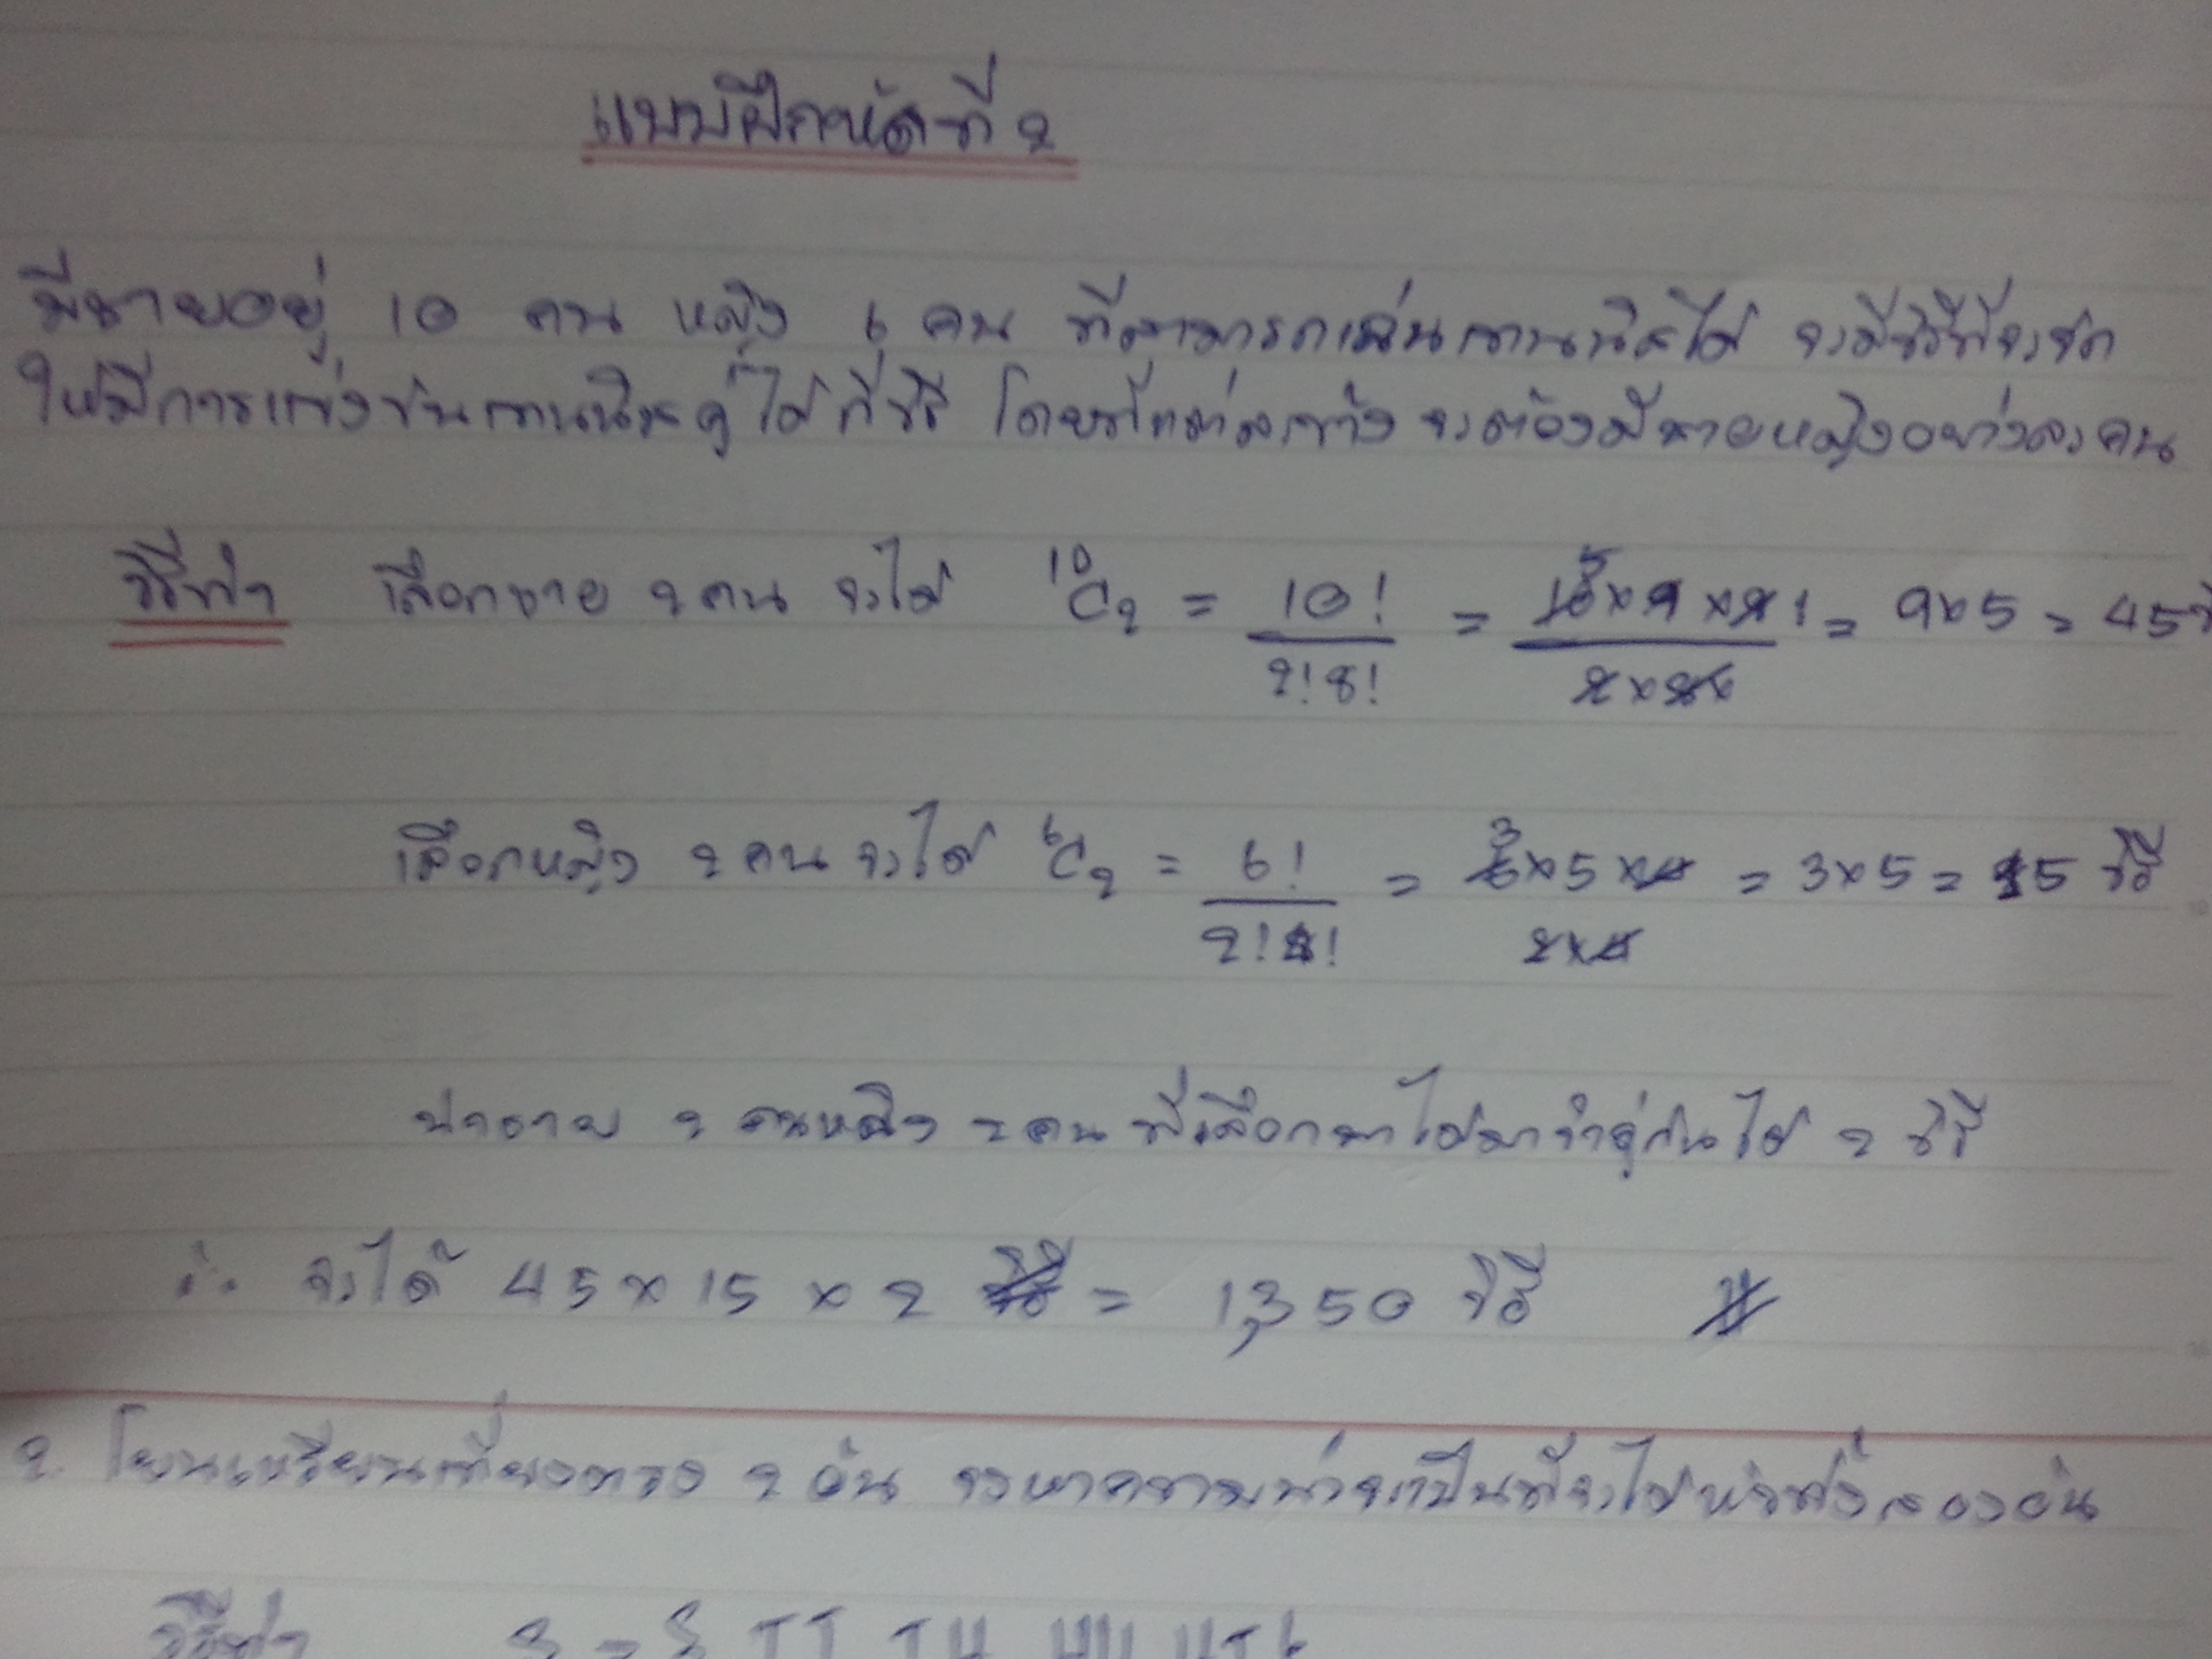 แบบฝึกหัดที่ 2
มีชายอยู่ 10 คน หญิง 6 คน ที่สามารถเล่นเทนนิสได้ จะมีวิธีที่จะจัด
ให้มีการแข่งขันเทนนิสคู่ได้กี่วิธี โดยที่แต่ละข้างจะต้องมีชายหญิงอย่างละคน
วิธีทำ เลือกชาย 2 คน จะได้ ¹⁰C₂ = 10!/2!8! = 10×9×8!/2×8! = 9×5 = 45
เลือกหญิง 2 คน จะได้ ⁶C₂ = 6!/2!4! = 6×5×4/2×4 = 3×5 = 15 วิธี
นำชาย 2 คนหญิง 2 คน ที่เลือกมาได้มาจับคู่กันได้ 2 วิธี
∴ จะได้ 45×15×2 = 1,350 วิธี
2. โยนเหรียญเที่ยงตรง 2 อัน จงหาความน่าจะเป็นที่จะได้หัวทั้งสองอัน
วิธีทำ S = { TT, TH, HH, HT }